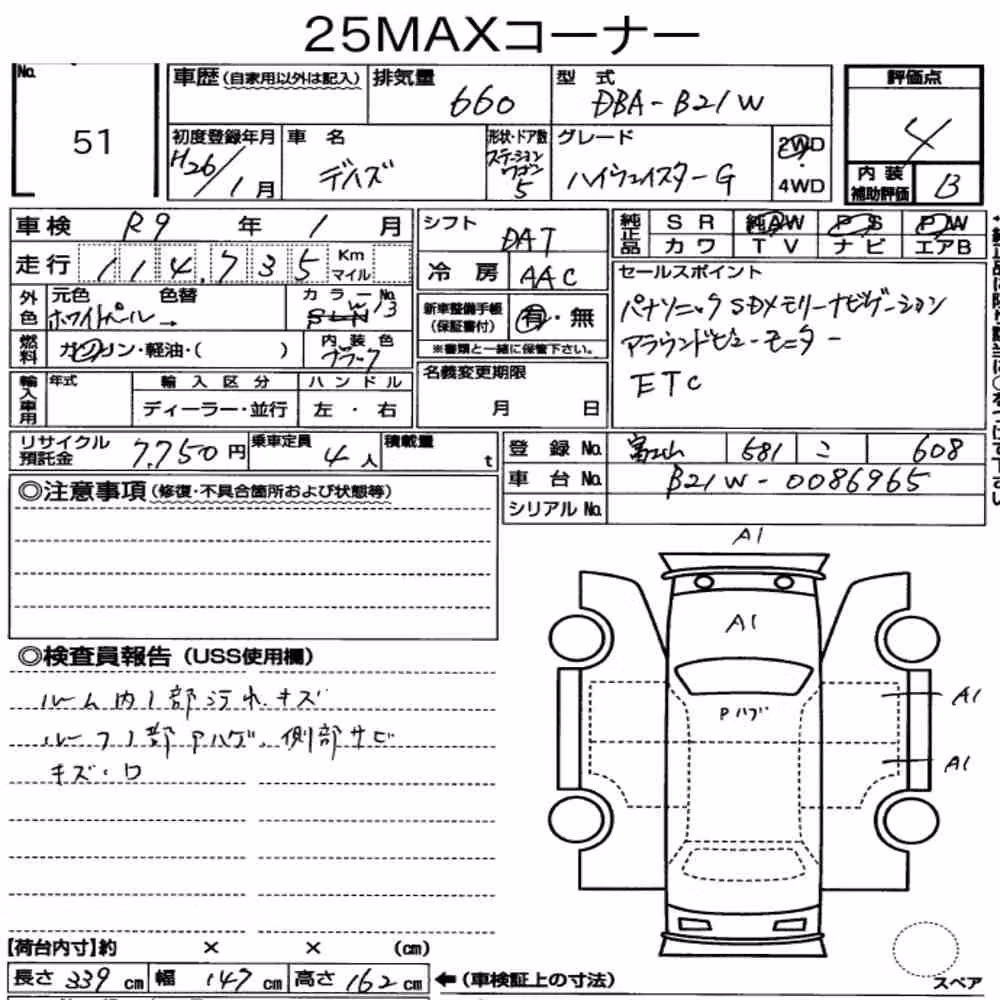 25MAXコーナー
No.
51
車歴(自家用以外は記入)
排気量
660
型 式
DBA-B21W
評価点
4
初度登録年月
H26/1月
車 名
デイズ
形状・ドア数
ステーションワゴン
5
グレード
ハイウェイスターG
2WD
・
4WD
内 装
補助評価
B
車検 R9 年 1 月
走行 114,735 Km マイル
外色
元色 色替
ホワイトパール→
カラーNo.
W13
燃料
ガソリン・軽油・( )
内 装 色
ブラック
輸入車用
年式
輸 入 区 分
ディーラー・並行
ハ ン ド ル
左 ・ 右
シフト
DAT
冷 房
AAC
新車整備手帳
(保証書付)
有・無
※書類と一緒に保管下さい。
名義変更期限
月 日
純正品
S R 純AW P S P W
カ ワ T V ナ ビ エアB
セールスポイント
パナソニックSDメモリーナビゲーション
アラウンドビューモニター
ETC
リサイクル預託金 7,750円
乗車定員 4人
積載量 t
登 録 No. 富山 581 こ 608
車 台 No. B21W-0086965
シリアル No.
◎注意事項(修復・不具合箇所および状態等)
◎検査員報告(USS使用欄)
ルーム内1部汚れ.キズ
ルーフ1部Pハゲ、側部サビ
キズ・凹
A1
A1
Pハゲ
A1
A1
【荷台内寸】約 × × (cm)
長さ 339 cm 幅 147 cm 高さ 162 cm ←(車検証上の寸法)
スペア